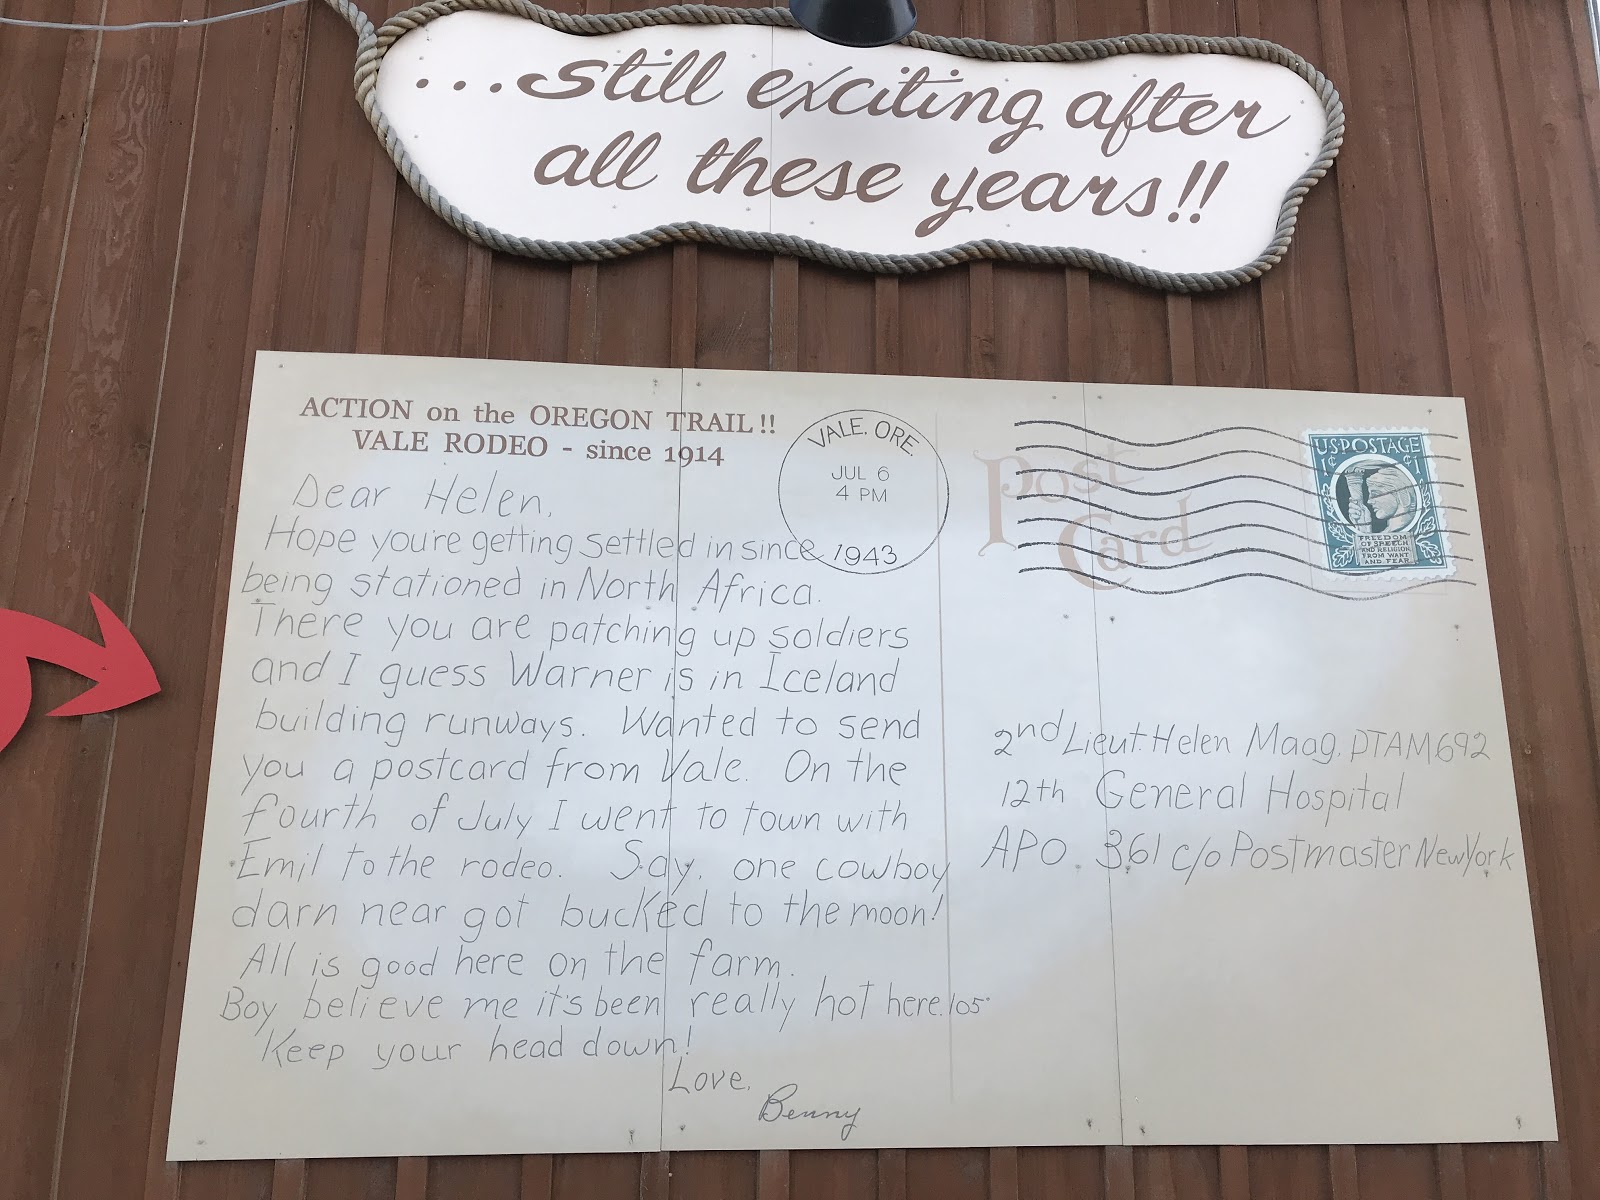 ...still exciting after
all these years!!
ACTION on the OREGON TRAIL!!
VALE RODEO - since 1914
VALE, ORE.
JUL 6
4 PM
1943
Post
Card
U.S. POSTAGE
1¢ ¢1
FREEDOM OF SPEECH
AND RELIGION,
FROM WANT
AND FEAR
Dear Helen,
Hope you're getting settled in since
being stationed in North Africa.
There you are patching up soldiers
and I guess Warner is in Iceland
building runways. Wanted to send
you a postcard from Vale. On the
fourth of July I went to town with
Emil to the rodeo. Say, one cowboy
darn near got bucked to the moon!
All is good here on the farm.
Boy believe me it's been really hot here. 105°
Keep your head down!
Love,
Benny
2nd Lieut. Helen Maag, DTAM692
12th General Hospital
APO. 361 c/o Postmaster New York